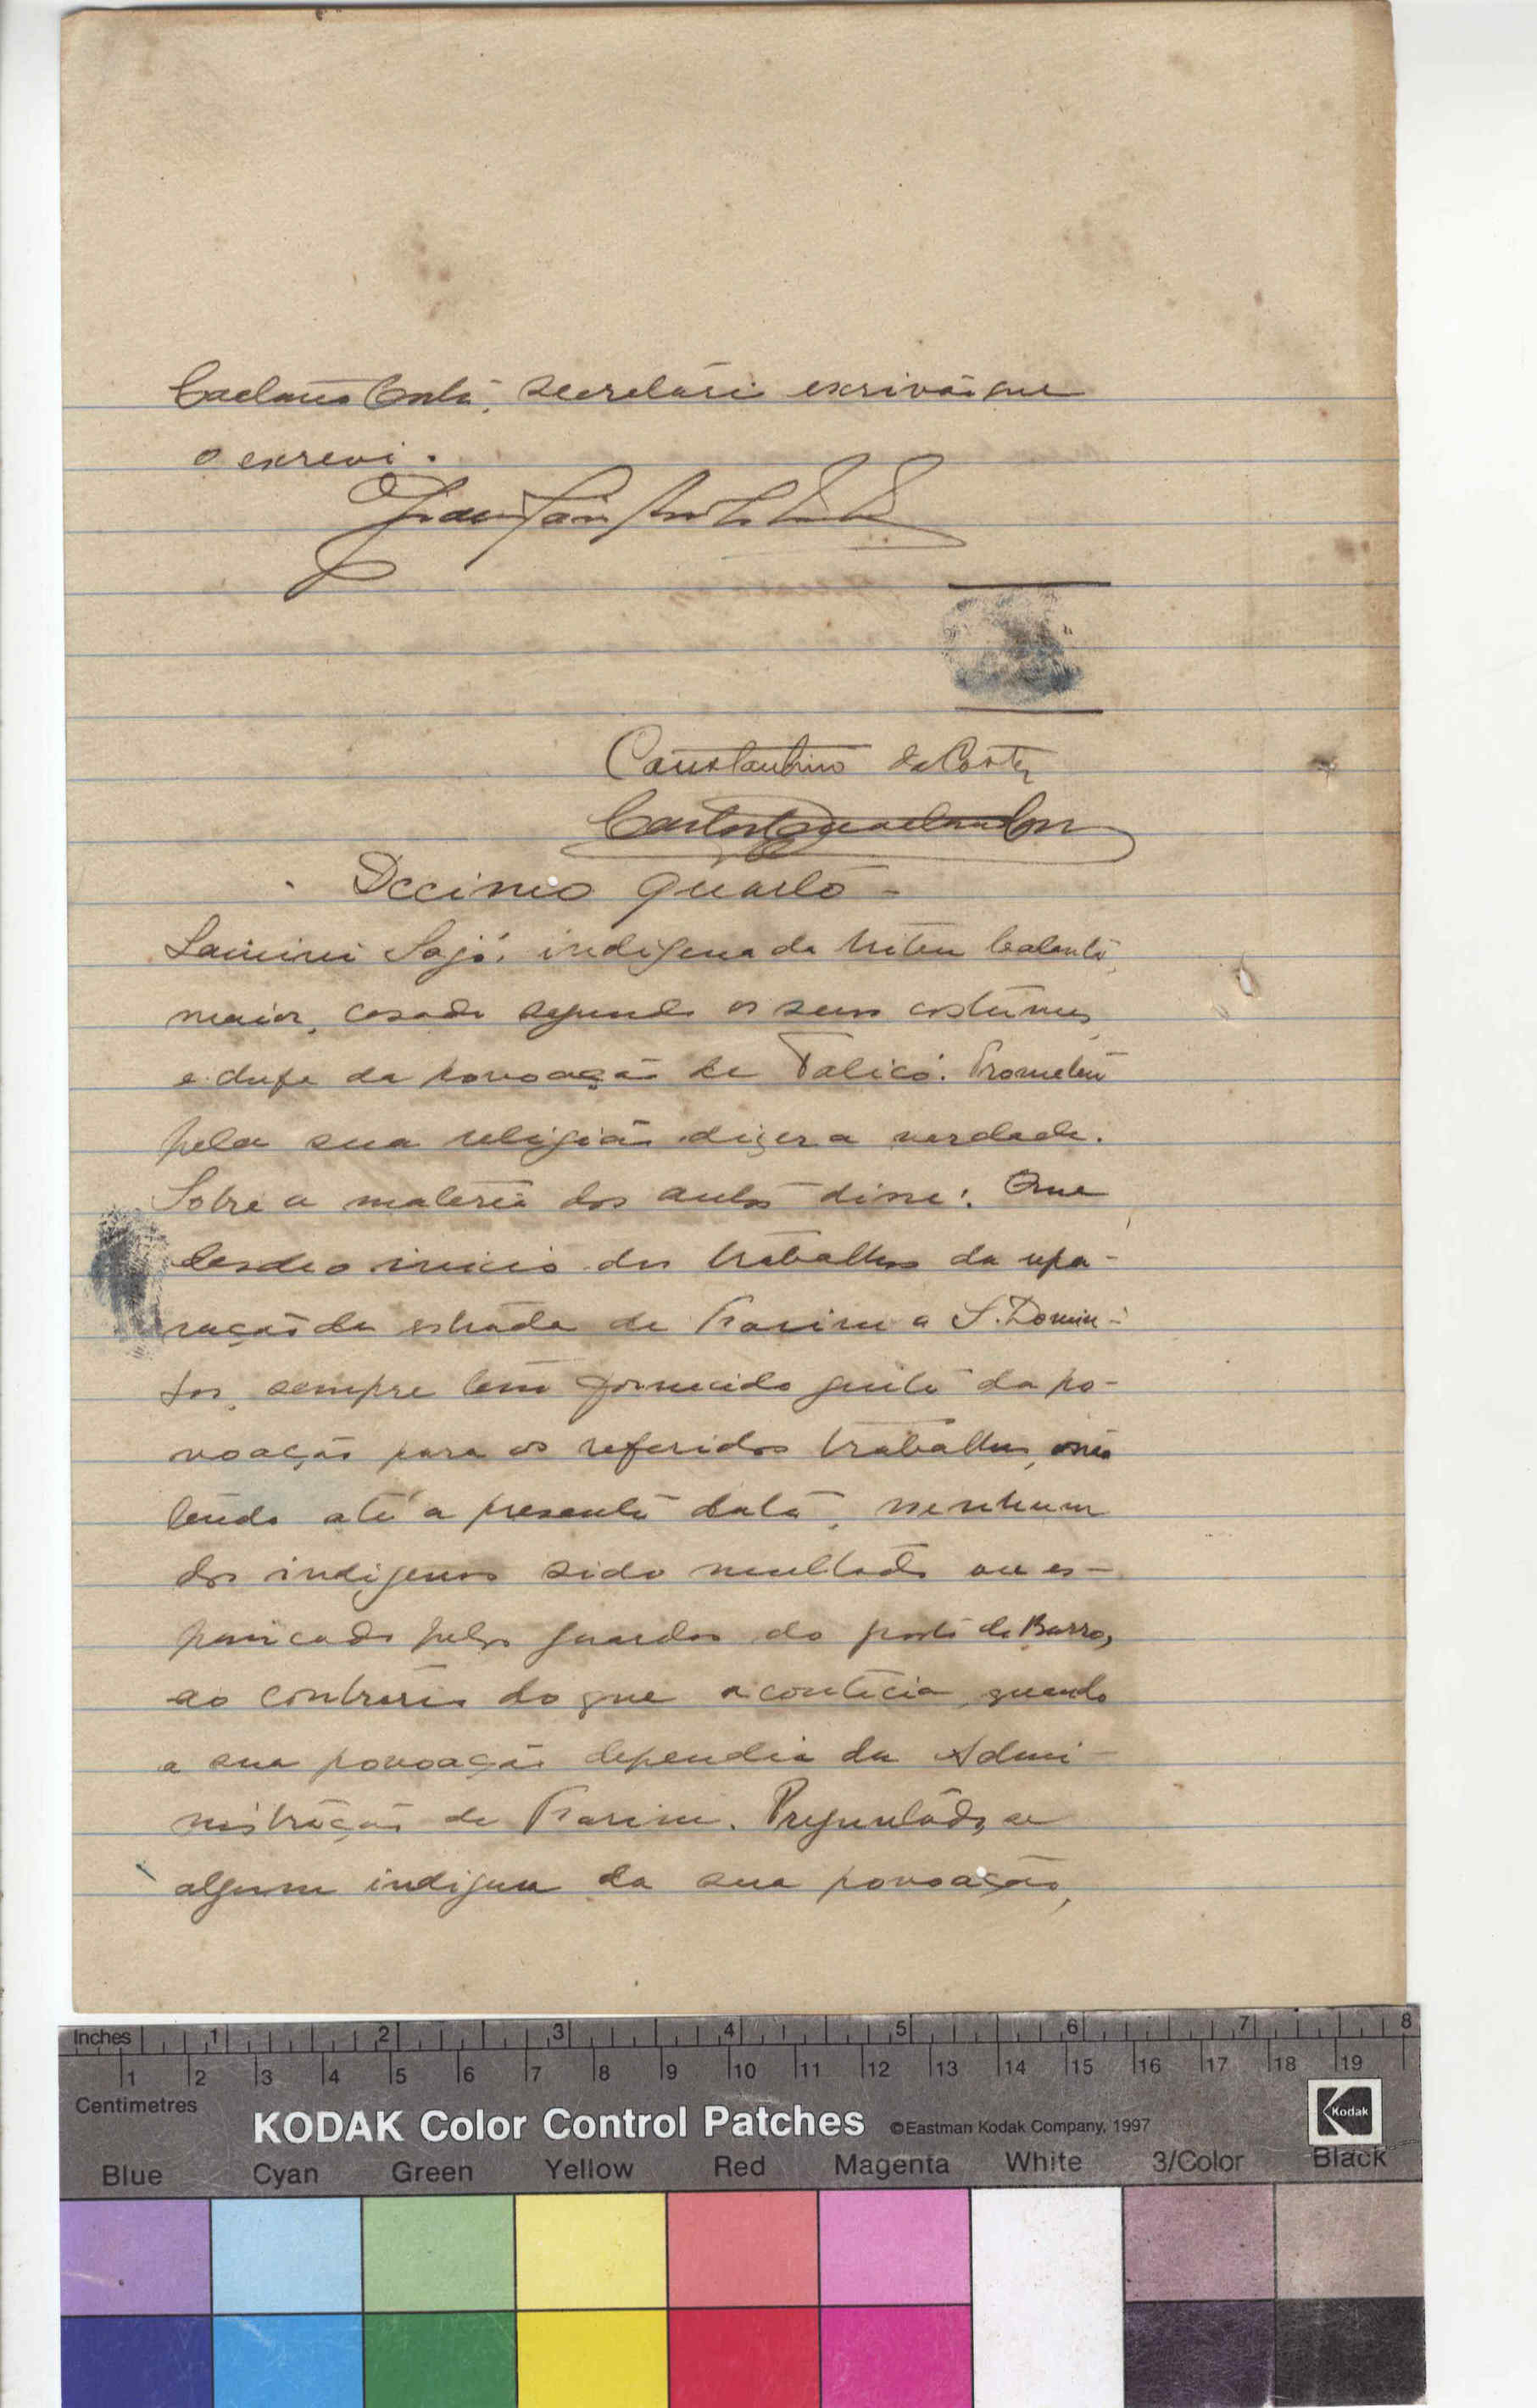 Caetano Costa, secretário escrivão que
o escrevi.
Constantino da Costa
Decimo quarto -
Sajó, indigena da tribu Balanta,
maior, casado segundo os seus costumes,
e chefe da povoação de Talicó. Prometeu
pela sua religião dizer a verdade.
Sobre a materia dos autos disse: Que
desde o inicio dos trabalhos da repa-
ração da estrada de Farim a S. Domin-
gos, sempre tem fornecido gente da po-
voação para os referidos trabalhos, não
tendo até a presente data, nenhum
dos indigenas sido multado ou es-
pancado pelos guardas do posto de Barro,
ao contrario do que acontecia, quando
a sua povoação dependia da Admi-
nistração de Farim. Preguntado, se
algum indigena da sua povoação,
Inches 1 2 3 4 5 6 7 8
1 2 3 4 5 6 7 8 9 10 11 12 13 14 15 16 17 18 19
Centimetres
KODAK Color Control Patches ©Eastman Kodak Company, 1997 Kodak
Blue Cyan Green Yellow Red Magenta White 3/Color Black